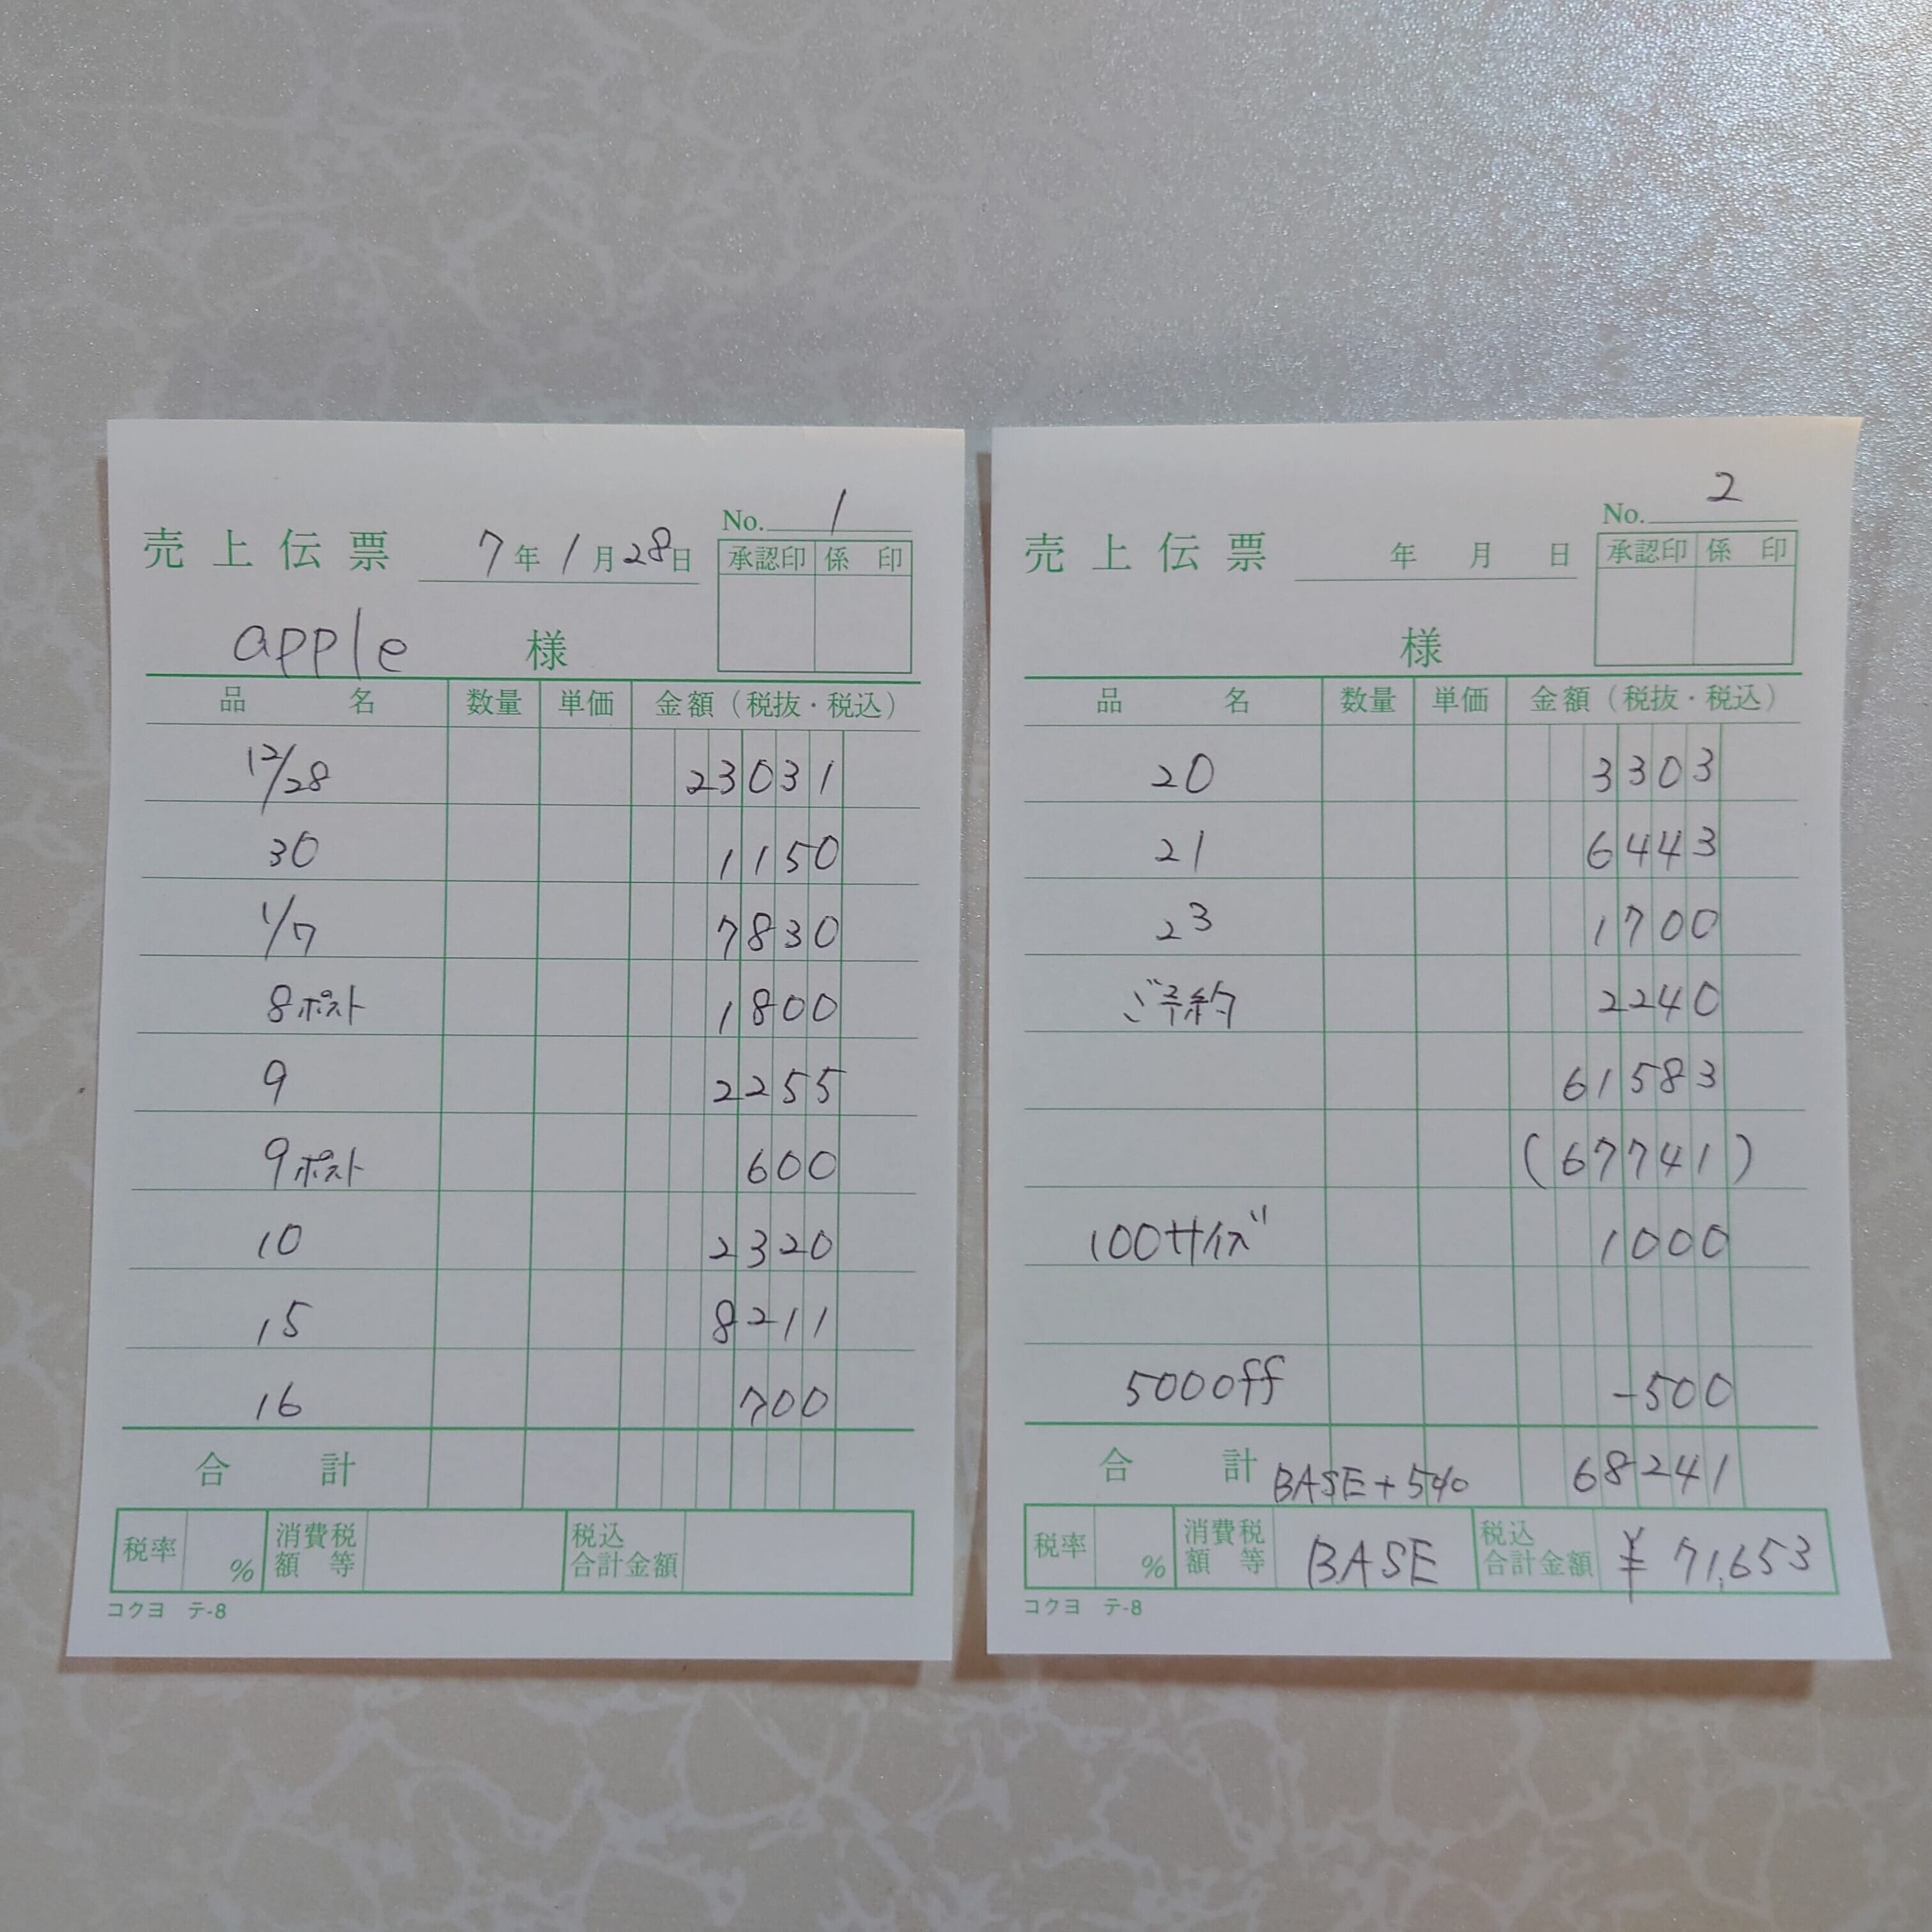 No. 1
売上伝票 7年1月28日
承認印 係印
apple 様
品名 数量 単価 金額（税抜・税込）
12/28 23031
30 1150
1/7 7830
8ポスト 1800
9 2255
9ポスト 600
10 2320
15 8211
16 700
合計
税率 % 消費税額等 税込合計金額
コクヨ テ-8
No. 2
売上伝票 年 月 日
承認印 係印
様
品名 数量 単価 金額（税抜・税込）
20 3303
21 6443
23 1700
ご予約 2240
61583
(67741)
100サイズ 1000
500off -500
合計 BASE+5% 68241
税率 % 消費税額等 BASE 税込合計金額 ¥71,653
コクヨ テ-8